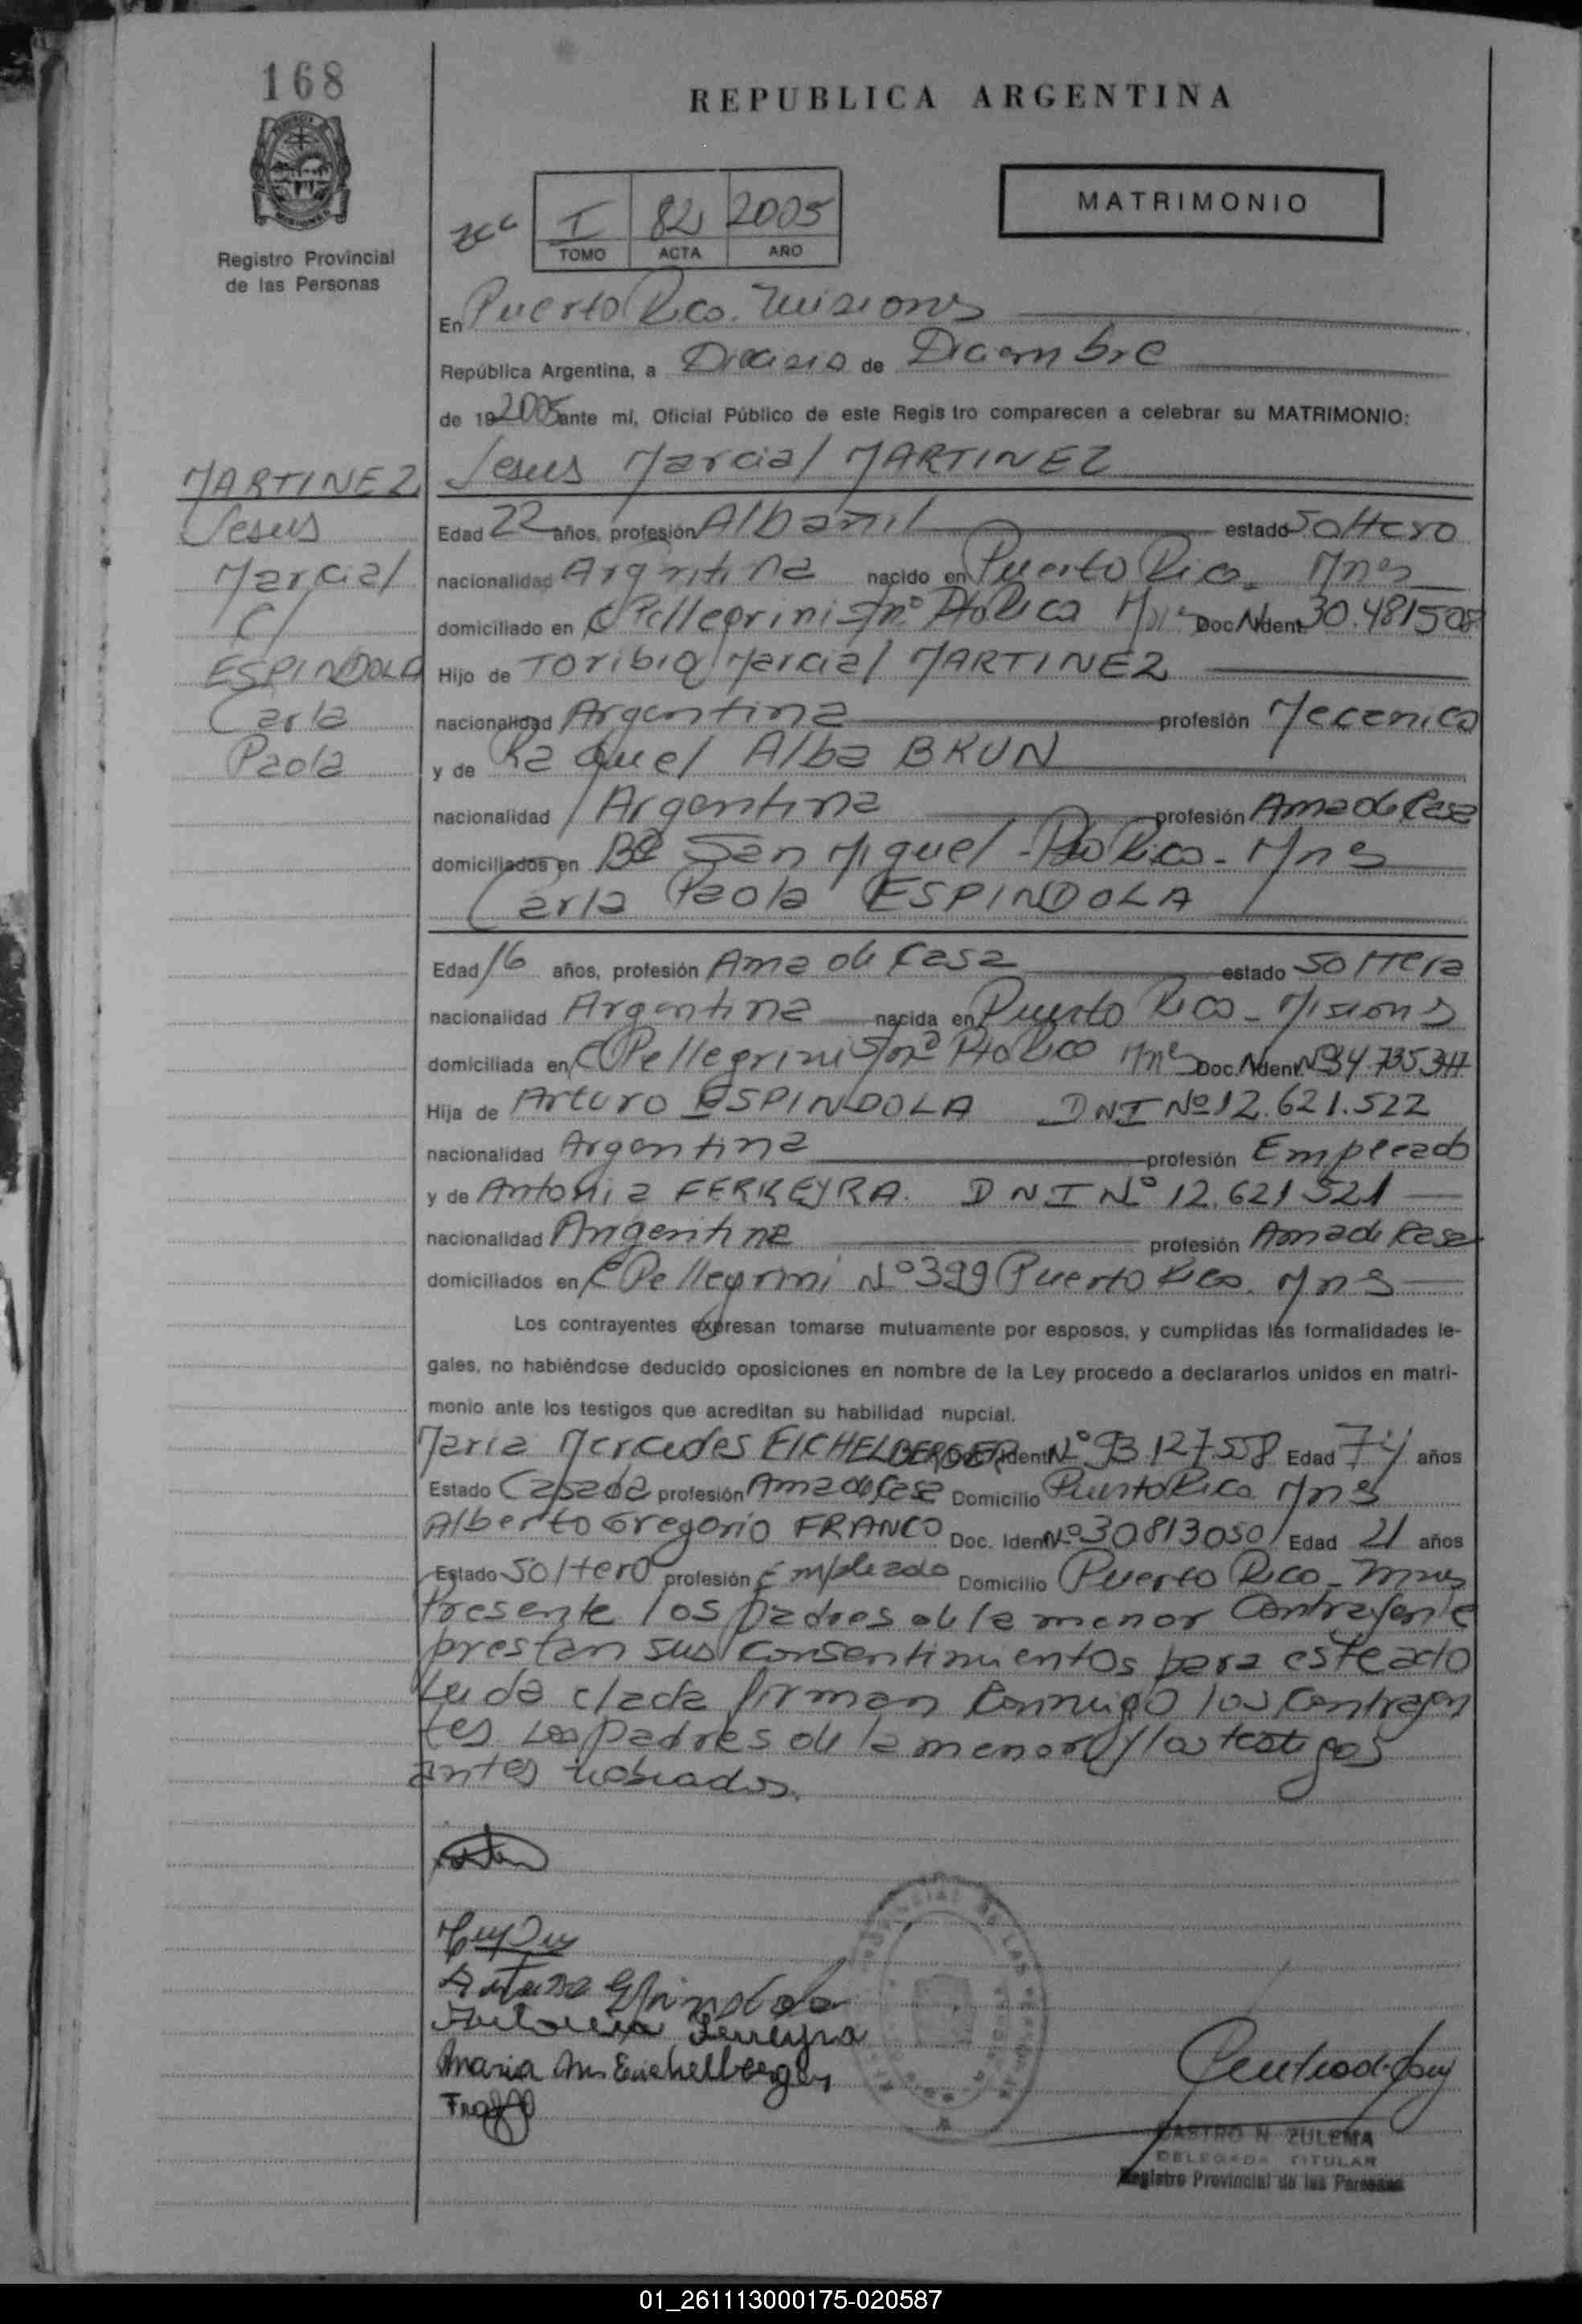 168
REPUBLICA ARGENTINA
MATRIMONIO
I 82 2005
TOMO ACTA AÑO
Registro Provincial
de las Personas
En Puerto Rico. Misiones
República Argentina, a de Diciembre
de 19 2005 ante mí, Oficial Público de este Regis tro comparecen a celebrar su MATRIMONIO:
Jesus Marcial MARTINEZ
MARTINEZ
Jesus
Marcial
C/
ESPINDOLA
Carla
Paola
Edad 22 años, profesión Albañil estado Soltero
nacionalidad Argentina nacido en Puerto Rico. Mnes
domiciliado en C Pellegrini s/nº Pto Rico Mnes Doc. Ident. 30.481508
Hijo de Toribio Marcial MARTINEZ
nacionalidad Argentina profesión Mecanico
y de Raquel Alba BRUN
nacionalidad Argentina profesión Ama de Casa
domiciliados en Bº San Miguel - Pto Rico - Mnes
Carla Paola ESPINDOLA
Edad 16 años, profesión Ama de Casa estado Soltera
nacionalidad Argentina nacida en Puerto Rico - Misiones
domiciliada en C Pellegrini s/nº Pto Rico Mnes Doc. Ident. Nº 34.735.
Hija de Arturo ESPINDOLA DNI Nº 12.621.522
nacionalidad Argentina profesión Empleado
y de Antonia FERREYRA. DNI Nº 12.621 521
nacionalidad Argentina profesión Ama de Casa
domiciliados en C Pellegrini Nº 399 Puerto Rico. Mnes
Los contrayentes expresan tomarse mutuamente por esposos, y cumplidas las formalidades le-
gales, no habiéndose deducido oposiciones en nombre de la Ley procedo a declararlos unidos en matri-
monio ante los testigos que acreditan su habilidad nupcial.
Maria Mercedes EICHELBERGER Doc. Ident. Nº 93.127.558 Edad 74 años
Estado Casada profesión Ama de Casa Domicilio Puerto Rico Mnes
Alberto Gregorio FRANCO Doc. Ident. Nº 30813050 Edad 21 años
Estado Soltero profesión Empleado Domicilio Puerto Rico - Mnes
Presente los padres de la menor Contrayente
prestan sus consentimientos para este acto
Leida el acta firman Conmigo los Contrayen
tes Los padres de la menor y los testigos
antes nobrados.
Arturo Espindola
Antonia Ferreyra
Maria M. Eichelberger
CASTRO N. ZULEMA
DELEGADA TITULAR
Registro Provincial de las Personas
01_261113000175-020587